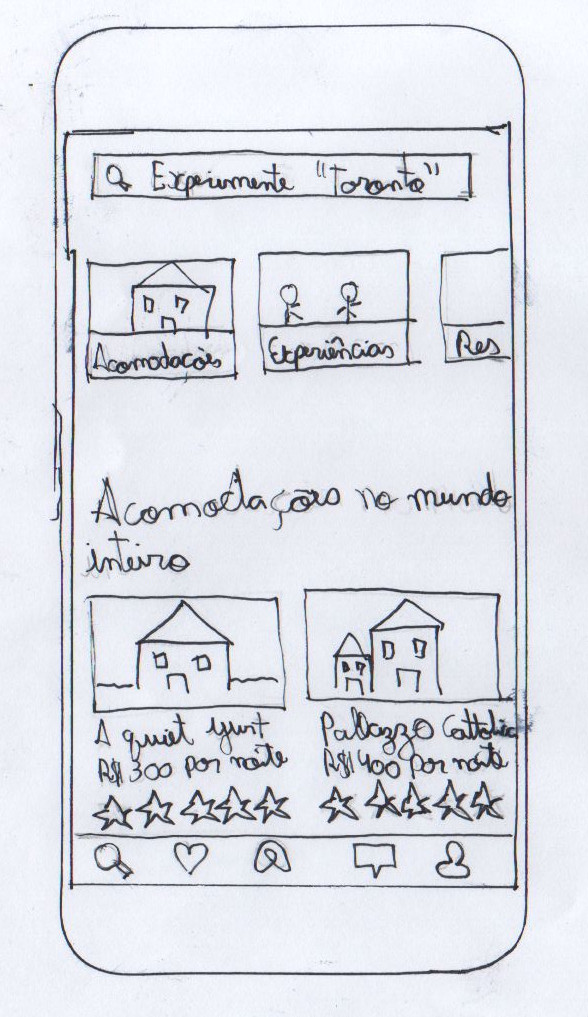 Experimente "Toronto"
Acomodações
Experiências
Res
Acomodações no mundo
inteiro
A quiet yurt
R$300 por noite
Pallazzo Cattolica
R$1400 por noite